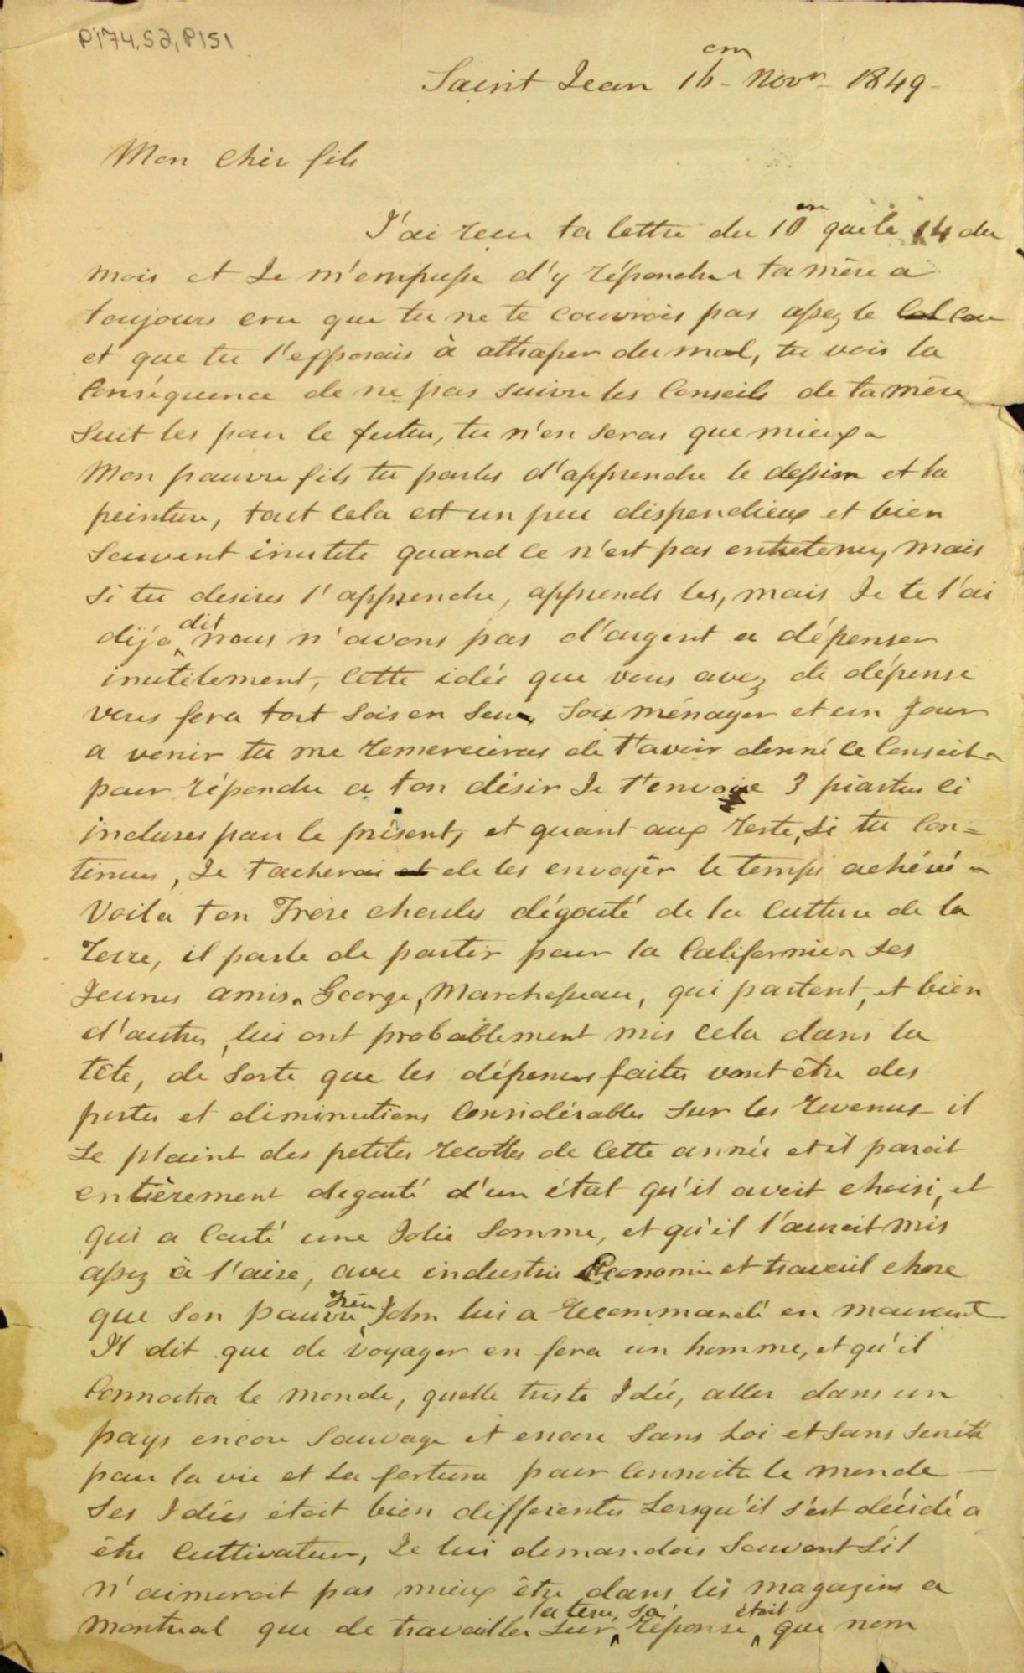 P174,S2,P151
Saint Jean 16 em Novr 1849
Mon cher fils
J'ai recu ta lettre du 10 em que le 14 du
mois et Je m'empresse d'y répondre ta mère a
toujours cru que tu ne te couvrois pas assez le col cou
et que tu t'exposais à attraper du mal, tu vois la
Conséquence de ne pas suivre les Conseils de ta mère
Suit les pour le futur, tu n'en seras que mieux
Mon pauvre fils tu parles d'apprendre le dessin et la
peinture, tout cela est un peu dispendieux et bien
Souvent inutile quand ce n'est pas entretenu, mais
si tu desires l'apprendre, apprends les, mais Je te l'ai
déja dit nous n'avons pas d'argent a dépenser
inutilement, cette idée que vous avez de dépense
vous fera tort sois en seur, Soit ménager et un Jour
a venir tu me remercieras de t'avoir donné ce Conseil
pour répondre a ton désir Je t'envoie 3 piastres ci
incluses pour le présent, et quant aux reste, si tu Con=
tinues, Je tacherai et de les envoyer le temps achévé
Voila ton Frère charles dégouté de la Culture de la
terre, il parle de partir pour la Californie Ses
Jeunes amis George, Marchesseau, qui partent, et bien
d'autres, lui ont probablement mis cela dans la
tête, de Sorte que les dépenses faites vont être des
pertes et diminutions Considérables sur les revenus il
se plaint des petites recottes de cette année et il parait
entièrement degouté d'un état qu'il avoit choisi, et
qui a couté une Jolie Somme, et qu'il l'auroit mis
assez à l'aise, avec industrie Economie et travail chose
que son pauvre frère John lui a recommandé en mourant
Il dit que de voyager en fera un homme, et qu'il
Connoitra le monde, quelle triste Idée, aller dans un
pays encore Sauvage et encore sans Loi et sans sureté
pour la vie et la fortune pour connoitre le monde
Ses Idées étoit bien differentes Lorsqu'il s'est décidé a
être Cultivateur, Je lui demandois Souvent s'il
n'aimeroit pas mieux être dans les magazins a
montreal que de travailler sur la terre, sa réponse étoit que nom